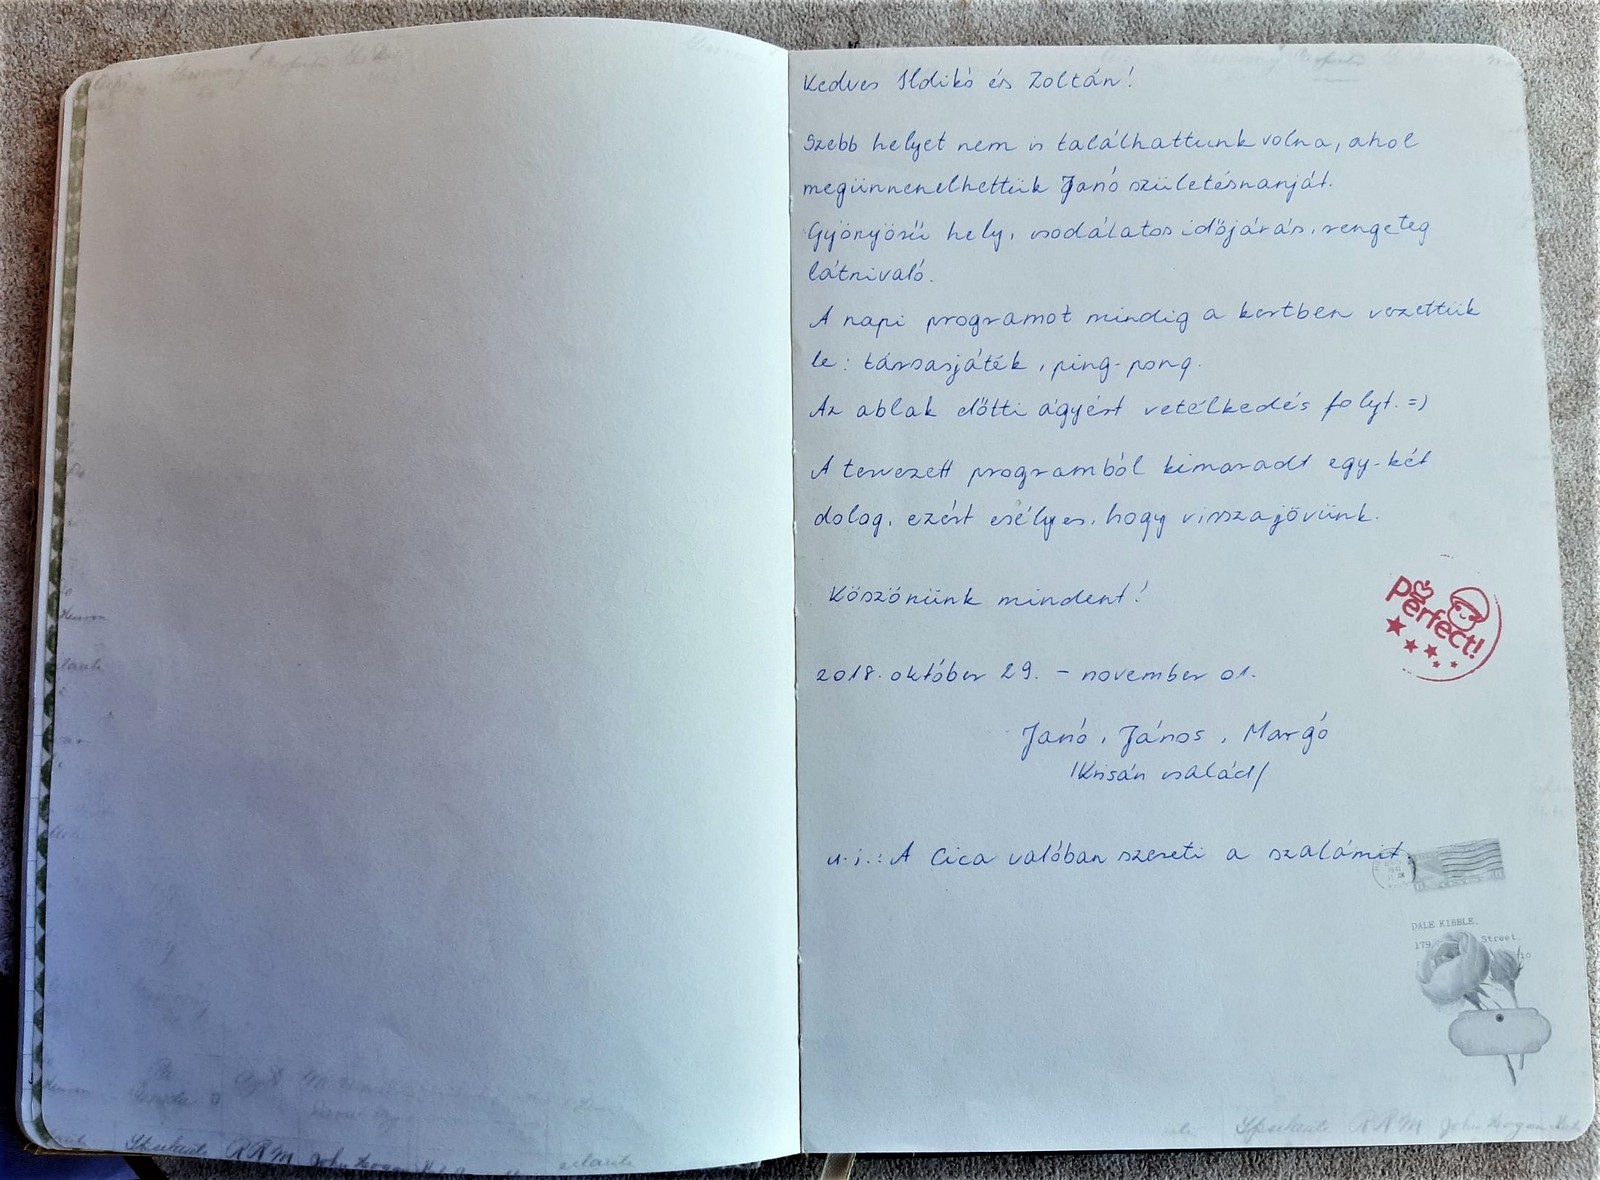 Kedves Ildikó és Zoltán!
Szebb helyet nem is találhattunk volna, ahol
megünnepelhettük Janó születésnapját.
Gyönyörű hely, csodálatos időjárás, rengeteg
látnivaló.
A napi programot mindig a kertben vezettük
le: társasjáték, ping-pong.
Az ablak előtti ágyért vetélkedés folyt. =)
A tervezett programból kimaradt egy-két
dolog, ezért esélyes, hogy visszajövünk.
Köszönünk mindent!
Perfect!
2018. október 29. - november 01.
Janó, János, Margó
/Krisán család/
u.i.: A Cica valóban szereti a szalámit.
DALE KIBBLE.
179 Street
RRM John Hogan
RRM John Hogan